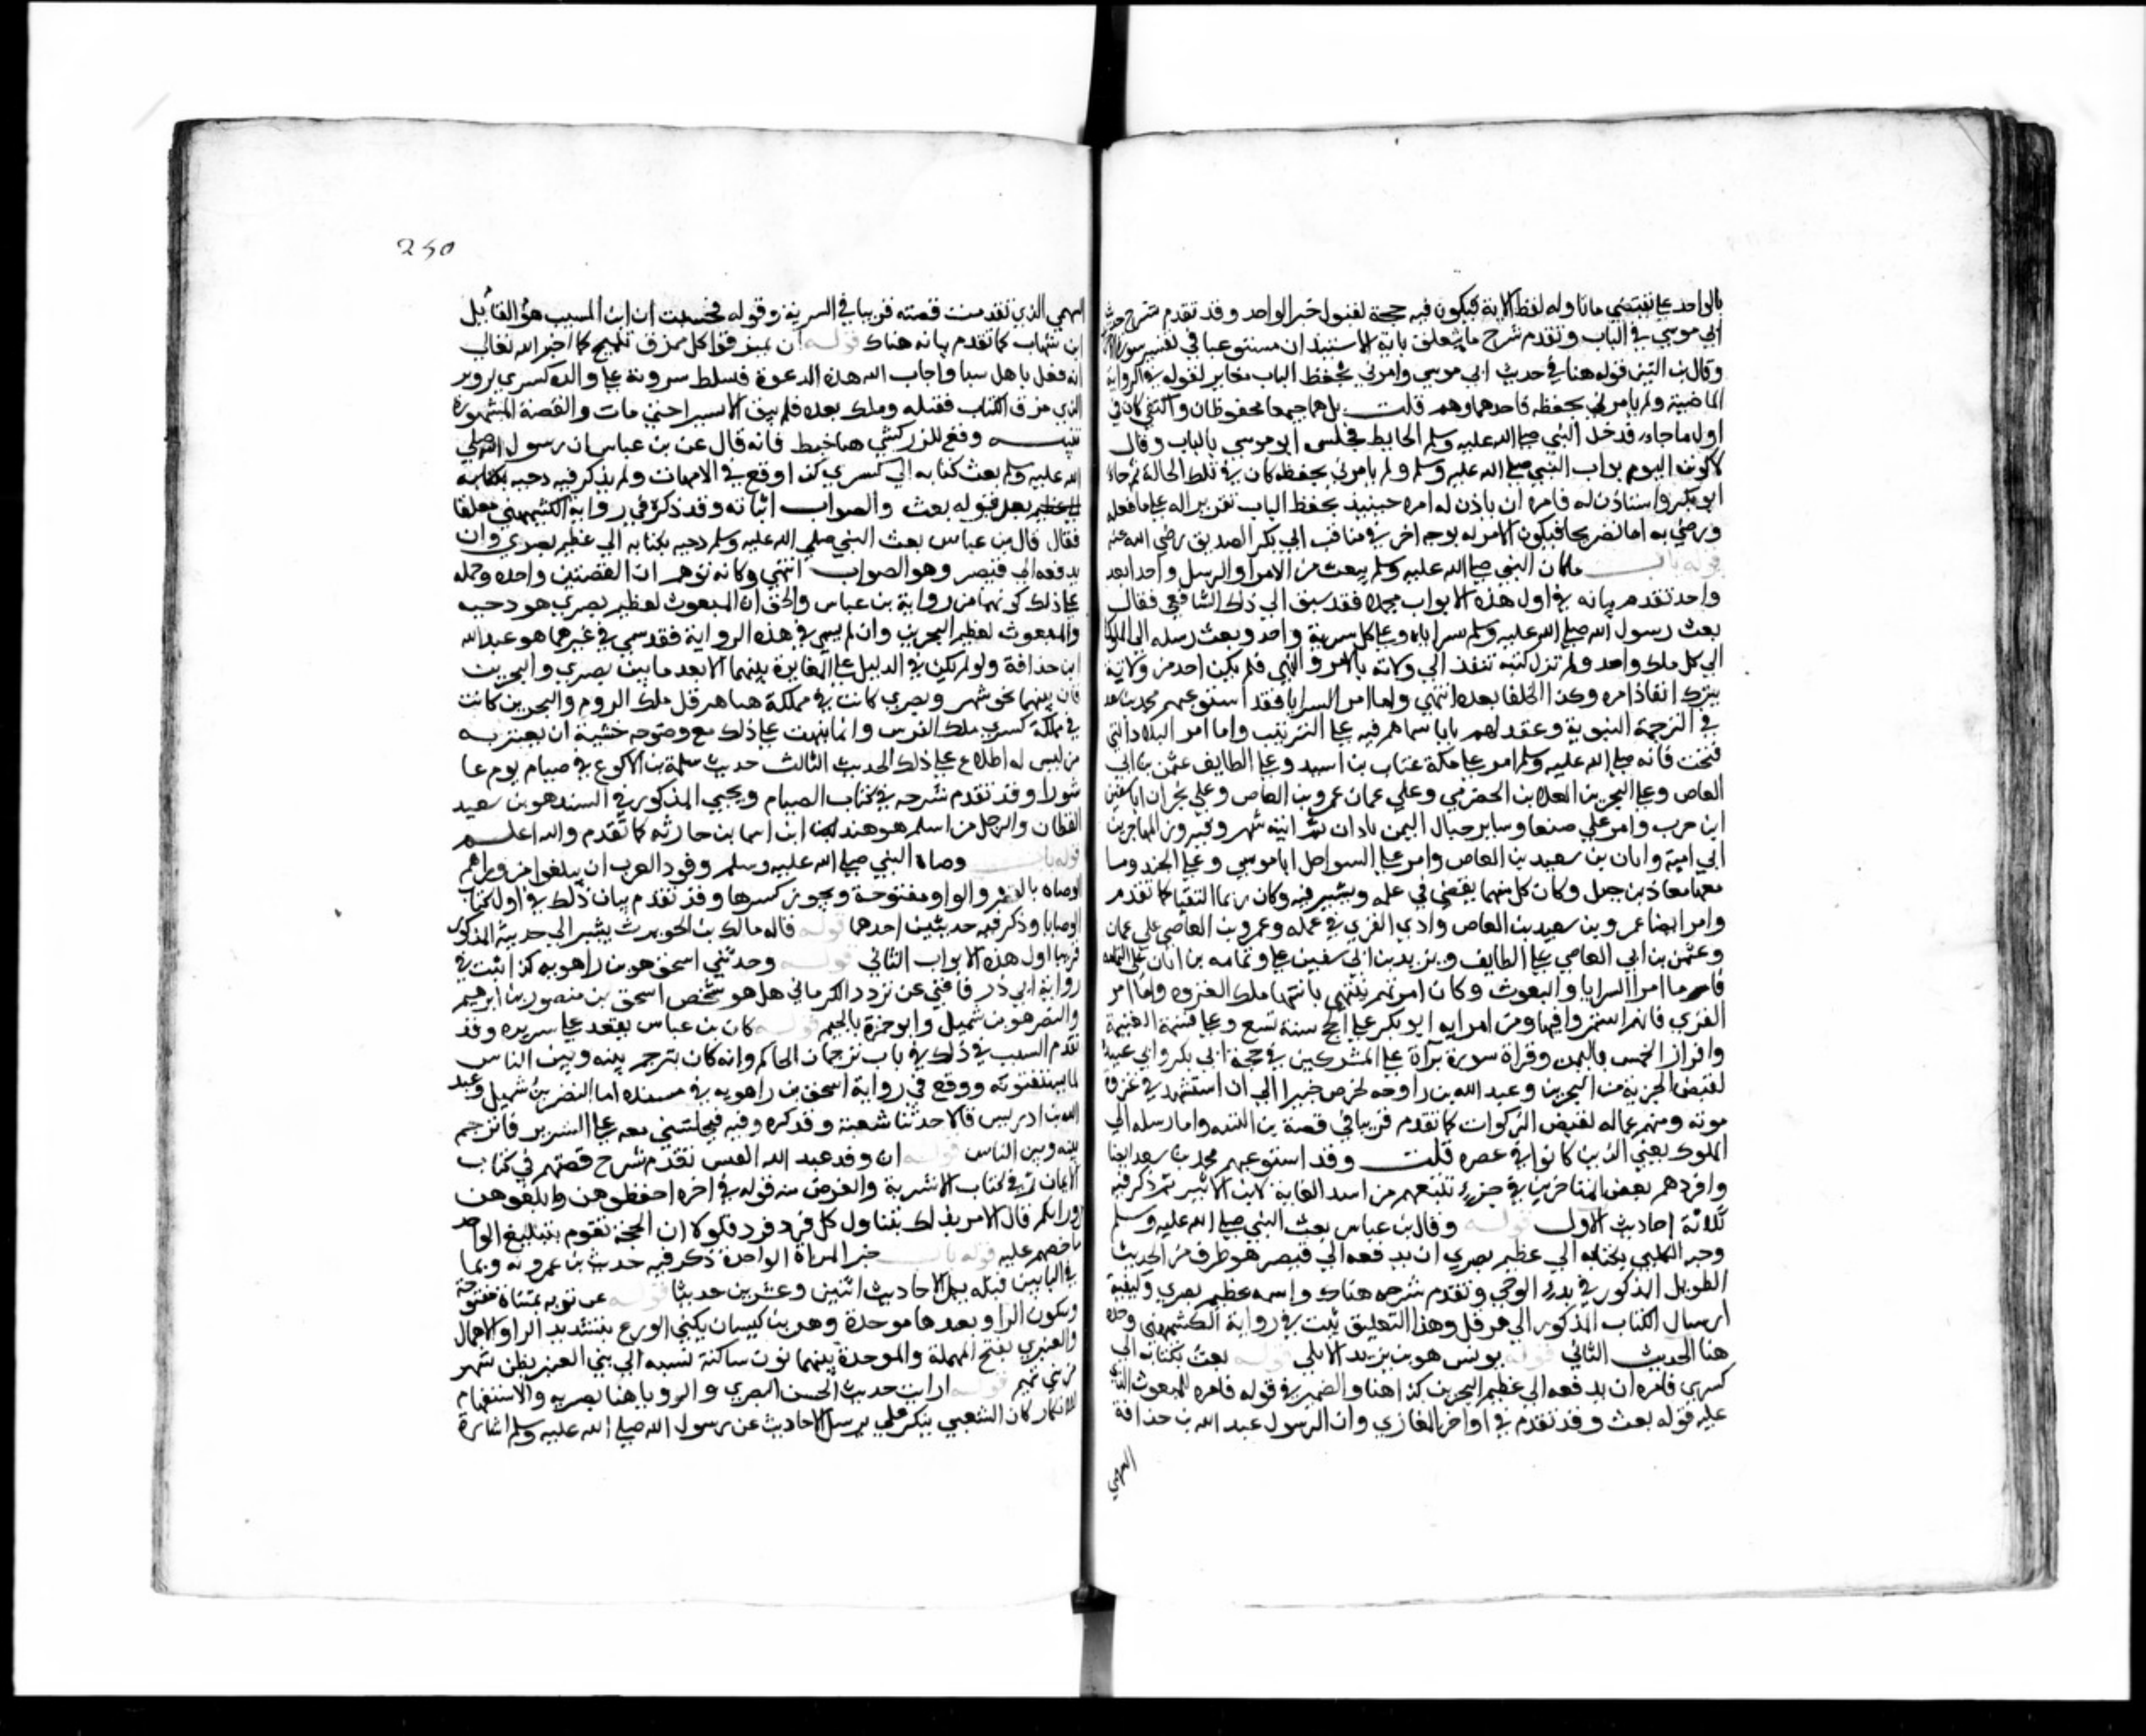 بالواحد على مقتضى ما تناوله لفظ الاية فيكون فيه حجة لقبول خبر الواحد وقد تقدم شرح حديث
ابي موسي في الباب وتقدم شرح ما يتعلق باية الاستيذان مستوعبا في تفسير سورة
وقال بن التين قوله هنا في حديث ابي موسي وامرني بحفظ الباب مغاير لقوله في الرواية
الماضية ولم يامرني بحفظه فاحدهما وهم قلت بل هما جميعا محفوظان والنفي كان في
اول ما جاء فدخل النبي صلي الله عليه وسلم الحايط فجلس ابو موسي بالباب وقال
لاكونن اليوم بواب النبي صلي الله عليه وسلم ولم يامرني بحفظه كان في تلك الحالة ثم جاء
ابو بكر واستاذن له فامره ان ياذن له امره حينيذ بحفظ الباب تقريرا له علي ما فعله
ورضي به اما تصريحا فيكون الامر له بوجه اخر في مناقب ابي بكر الصديق رضي الله عنه
قوله باب ما كان النبي صلي الله عليه وسلم يبعث من الامرا والرسل واحدا بعد
واحد تقدم بيانه في اول هذه الابواب مجملا فقد سبق الي ذلك الشافعي فقال
بعث رسول الله صلي الله عليه وسلم سراياه وعلي كل سرية واحد وبعث رسله الي الملوك
الي كل ملك واحد ولم تزل كتبه تنفذ الي ولاته بالامر والنهي فلم يكن احد من ولاته
يترك انفاذ امره وكذا الخلفا بعده انتهي واما امر السرايا فقد استوعبهم محمد بن سعد
في الترجمة النبوية وعقد لهم بابا سماهم فيه علي الترتيب واما امر البلاد التي
فتحت فانه صلي الله عليه وسلم امر علي مكة عتاب بن اسيد وعلي الطايف عثمن بن ابي
العاص وعلي البحرين العلا بن الحضرمي وعلي عمان عمرو بن العاص وعلي نجران ابا سفين
ابن حرب وامر علي صنعا وساير جبال اليمن باذان ثم ابنه شهر وفيروز والمهاجر بن
ابي امية وابان بن سعيد بن العاص وامر علي السواحل ابا موسي وعلي الجند وما
معها معاذ بن جبل وكان كل منهما يقضي في عمله ويسير فيه وكان ربما التقيا كما تقدم
وامر ايضا عمرو بن سعيد بن العاص وادي القري في عمله وعمرو بن العاصي علي عمان
وعثمن بن ابي العاصي علي الطايف ويزيد بن ابي سفين علي وثمامه بن اثال علي اليمامة
فاما امرا السرايا والبعوث وكان امرتهم تنتهي بانتها ملك الغزوه واما امر
القري فانهم استمروا فيها ومن امرايه ابو بكر علي الحج سنة تسع وعلي قسمة الغنيمة
وافراز الخمس باليمن وقراة سورة براة علي المشركين في حجة ابي بكر وابي عبيدة
لقبض الجزية من البحرين وعبد الله بن رواحه لخرص خيبر الي ان استشهد في غزوة
موته ومنهم عماله لقبض الزكوات كما تقدم قريبا في قصة بن اللتبيه واما رسله الي
الملوك يعني الذين كانوا في عصره قلت وقد استوعبهم محمد بن سعد ايضا
وافردهم بعض المتاخرين في جزء تتبعهم من اسد الغابة لابن الاثير ثم ذكر فيه
ثلاثة احاديث الاول قوله وقال بن عباس بعث النبي صلي الله عليه وسلم
دحية الكلبي بكتابه الي عظيم بصري ان يدفعه الي قيصر هو طرف من الحديث
الطويل المذكور في بدء الوحي وتقدم شرحه هناك واسمه عظيم بصري وكيفية
ارسال الكتاب المذكور الي هرقل وهذا التعليق ثبت في رواية الكشميهني وحده
هنا الحديث الثاني قوله يونس هو بن يزيد الايلي قوله بعث بكتابه الي
كسري فامره ان يدفعه الي عظيم البحرين كذا هنا والضمير في قوله فامره للمبعوث الذي
عليه قوله بعث وقد تقدم في اواخر المغازي وان الرسول عبد الله بن حذافة
السهمي
250
السهمي الذي تقدمت قصته قريبا في السرية وقوله فحسبت ان ابن المسيب هو القائل
ابن شهاب كما تقدم بيانه هناك قوله ان يمزقوا كل ممزق تلميح كما اخبر الله تعالي
انه فعل باهل سبا واجاب الله هذه الدعوة فسلط سرويه علي والده كسري ابرويز
الذي مزق الكتاب فقتله وملك بعده فلم يبق الا يسيرا حتي مات والقصة المشهورة
تنبيه وقع للزركشي هنا خبط فانه قال عن بن عباس ان رسول الله صلي
الله عليه وسلم بعث كتابه الي كسري كذا وقع في الامهات ولم يذكر فيه دحيه
بعد قوله بعث والصواب اثباته وقد ذكره في رواية الكشميهني معلقا
فقال قال بن عباس بعث النبي صلي الله عليه وسلم دحيه بكتابه الي عظيم بصري وان
يدفعه الي قيصر وهو الصواب انتهي وكانه توهم ان القصتين واحده وحمله
علي ذلك كونهما من رواية بن عباس والحق ان المبعوث لعظيم بصري هو دحيه
والمبعوث لعظيم البحرين وان لم يسم في هذه الرواية فقد سمي في غيرهما هو عبد الله
ابن حذافة ولو لم يكن في الدليل علي المغايرة بينهما الا بعد ما بين بصري والبحرين
فان بينهما نحو شهر وبصري كانت في مملكة هرقل ملك الروم والبحرين كانت
في مملكة كسري ملك الفرس وانما نبهت علي ذلك مع وضوحه خشية ان يغتر به
من ليس له اطلاع علي ذلك الحديث الثالث حديث سلمة بن الاكوع في صيام يوم عا
شورا وقد تقدم شرحه في كتاب الصيام ويحيي المذكور في السند هو بن سعيد
القطان والرجل من اسلم هو هند ابن اسما بن حارثه كما تقدم والله اعلم
قوله باب وصاة النبي صلي الله عليه وسلم وفود العرب ان يبلغوا من وراهم
الوصاه بالقصر والواو مفتوحة ويجوز كسرها وقد تقدم بيان ذلك في اول كتاب
الوصايا وذكر فيه حديثين احدهما قوله قاله مالك بن الحويرث يشير الي حديثه المذكور
قريبا اول هذه الابواب الثاني قوله وحدثني اسحق هو بن راهويه كذا ثبت في
رواية ابي ذر فاغني عن تردد الكرماني هل هو شخص اسحق بن منصور بن ابرهيم
والنضر هو بن شميل وابو جمرة بالجيم قوله كان بن عباس يقعد علي سريره وقد
تقدم السبب في ذلك في باب ترجمان الحاكم وانه كان يترجم بينه وبين الناس
لما يستفتونه ووقع في رواية اسحق بن راهويه في مسنده اما النضر بن شميل وعبد
الله بن ادريس قالا حدثنا شعبة وقد كره وفيه فيجلسني معه علي السرير فاترجم
بينه وبين الناس قوله ان وفد عبد القيس تقدم شرح قصتهم في كتاب
الايمان ثم في كتاب الاشربة والغرض منه قوله في اخره احفظوهن وابلغوهن
من وراكم فان الامر بذلك يتناول كل فرد فرد فلولا ان الحجة تقوم بتبليغ الواحد
ما خصهم عليه قوله باب خبر المراة الواحدة ذكر فيه حديث بن عمر وبما
في البابين قبله تكمل الاحاديث اثنين وعشرين حديثا قوله عن توبه بمثناة مفتوحة
وسكون الواو بعدها موحدة وهو بن كيسان يكني ابا الورع بتشديد الرا والاهمال
والعنبري بفتح المهملة والموحدة بينهما نون ساكنة نسبه الي بني العنبر بطن شهير
من بني تميم قوله ارايت حديث الحسن البصري والرويا هنا بصريه والاستفهام
للانكار كان الشعبي ينكر علي من يرسل الاحاديث عن رسول الله صلي الله عليه وسلم اشارة